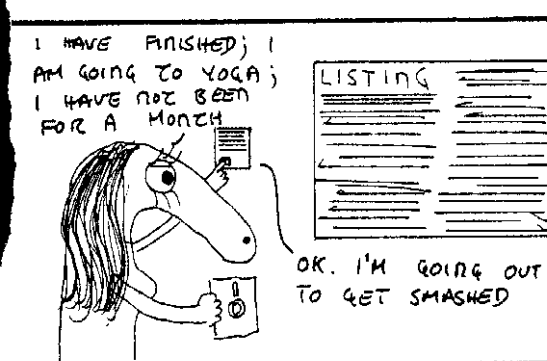 I HAVE FINISHED; I
AM GOING TO YOGA;
I HAVE NOT BEEN
FOR A MONTH
LISTING
OK. I'M GOING OUT
TO GET SMASHED